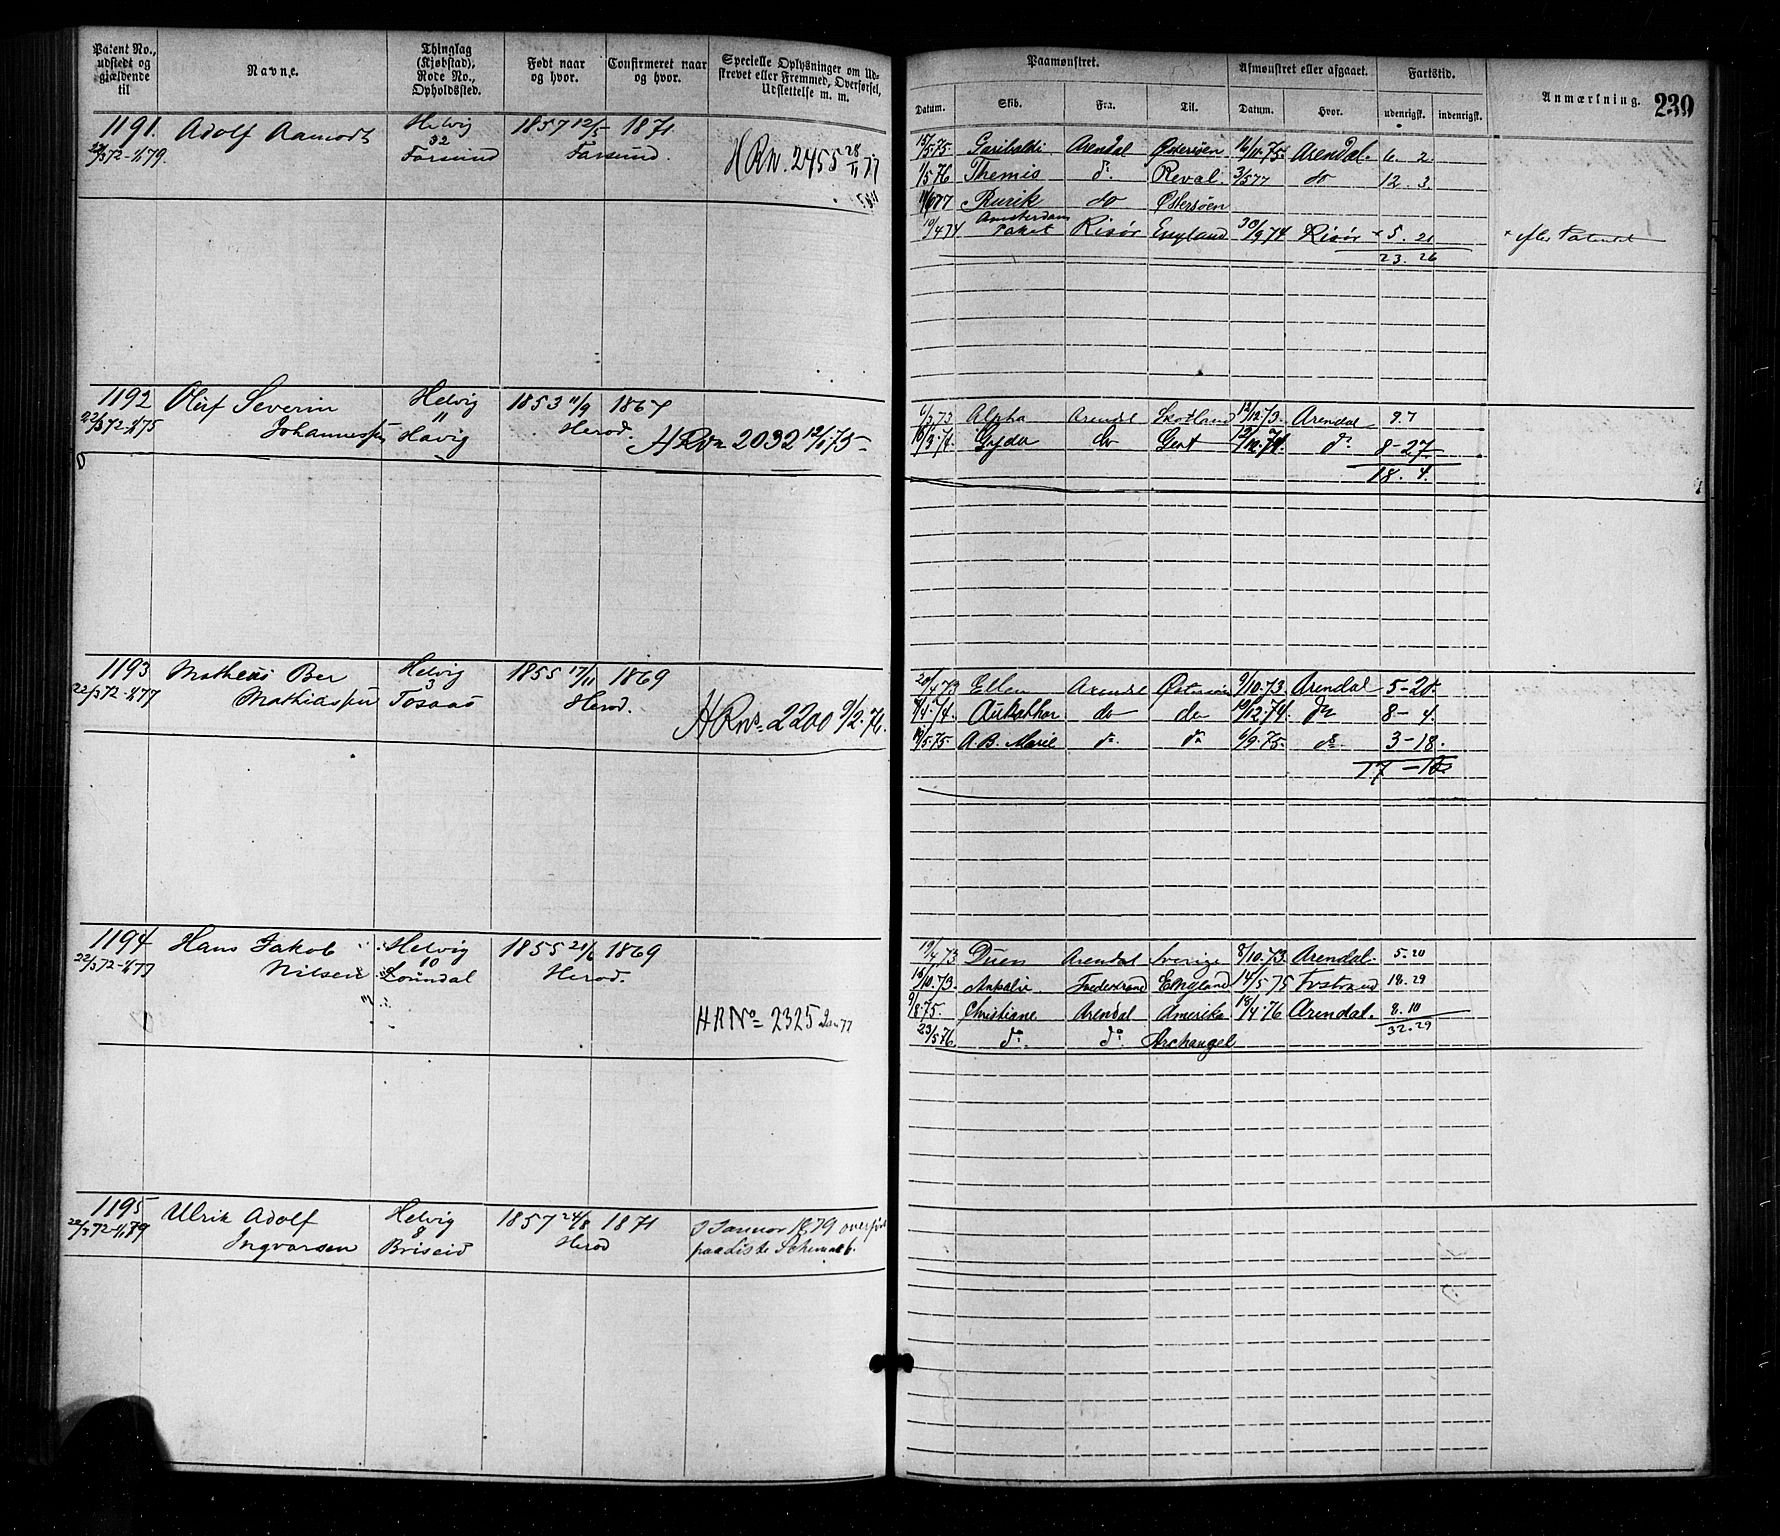 Patent No.,
udstedt og
gjældende
til
Navne.
Thinglag
(Kjøbstad),
Rode No.,
Opholdssted.
Født naar
og hvor.
Confirmeret naar
og hvor.
Specielle Oplysninger om Ud-
strevet eller Fremmed, Overførsel,
Udslettelse m. m.
Paamønstret.
Afmønstret eller afgaaet.
Fartstid.
Anmærkning.
230
Datum.
Skib.
Fra.
Til.
Datum.
Hvor.
udenrigsk.
indenrigsk.
1191. Adolf Aamodt Helvig 1857 12/5 1871
32
22/3 72-1/1 79. Farsund Farsund.
HRN. 2455 28/11 77
15/5 75. Garibaldi Arendal Østersøen 16/11 75. Arendal. 6. 2
1/5 76 Themis do Reval 3/5 77 do 12. 3.
Rurik do Østersøen
10/4 74 Amsterdam Paket Risør England 30/9 74 Risør × 5. 21 × efter Patentet
23. 26
1192 Oluf Severin Helvig 1853 11/9 1867
11
22/3 72-1/1 75 Johannessen Høvig Herod.
HRN 2032 12/1 75
6/3 73 Alpha Arendal Skotland 13/12 73. Arendal 9 7
Gyda do Gent 12/12 74. do 8-27
18. 4.
1193 Matheus Ber Helvig 1855 17/11 1869
3
22/3 72-1/1 77 Mathiassen Tosaas Herod.
HRNo. 2200 9/2. 76.
20/4 73 Ellen Arendal Østersøen 9/10 73 Arendal 5-20.
do do 19/12 74. do 8- 4.
19/5 75. A. B. Marie do do 6/9 75. do 3-18.
17 -12
1194 Hans Jakob Helvig 1855 21/6 1869
10
22/3 72-1/1 77 Nilsen Loundal Herod.
HRNo 2325 Jan 77
19/4 73 Duen Arendal Sverige 8/10 73. Arendal. 5. 20
15/10 73. England 14/5 75 18. 29
9/8 75. Christiane Arendal Amerika 18/4 76 Arendal. 8. 10
32. 29
23/5 76 do do Archangel
1195 Ulrik Adolf Helvig 1857 24/8 1871
8
22/3 72-1/1 79 Ingvarsen Briseid Herod
I Januar 1879 overført
paa Liste Schema 6.